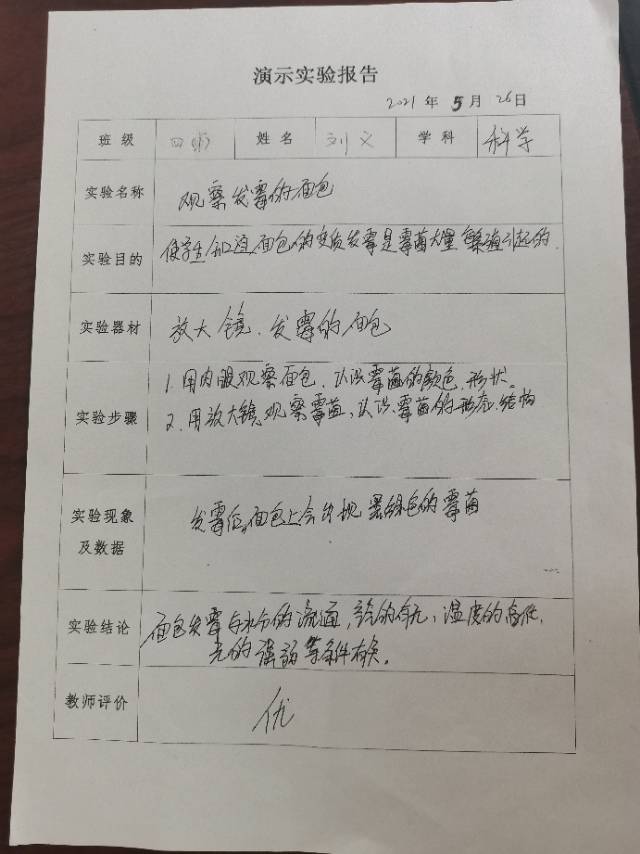 演示实验报告
2021年5月26日
班级 四 姓名 刘义 学科 科学
实验名称 观察发霉的面包
实验目的 使学生知道面包的变质发霉是霉菌大量繁殖引起的.
实验器材 放大镜、发霉的面包
实验步骤 1.用肉眼观察面包、认识霉菌的颜色、形状。
2.用放大镜观察霉菌,认识霉菌的形态、结构
实验现象及数据 发霉后,面包上会出现黑绿色的霉菌
实验结论 面包发霉与水分的流通,的有无、温度的高低、
光的强弱等条件有关。
教师评价 优